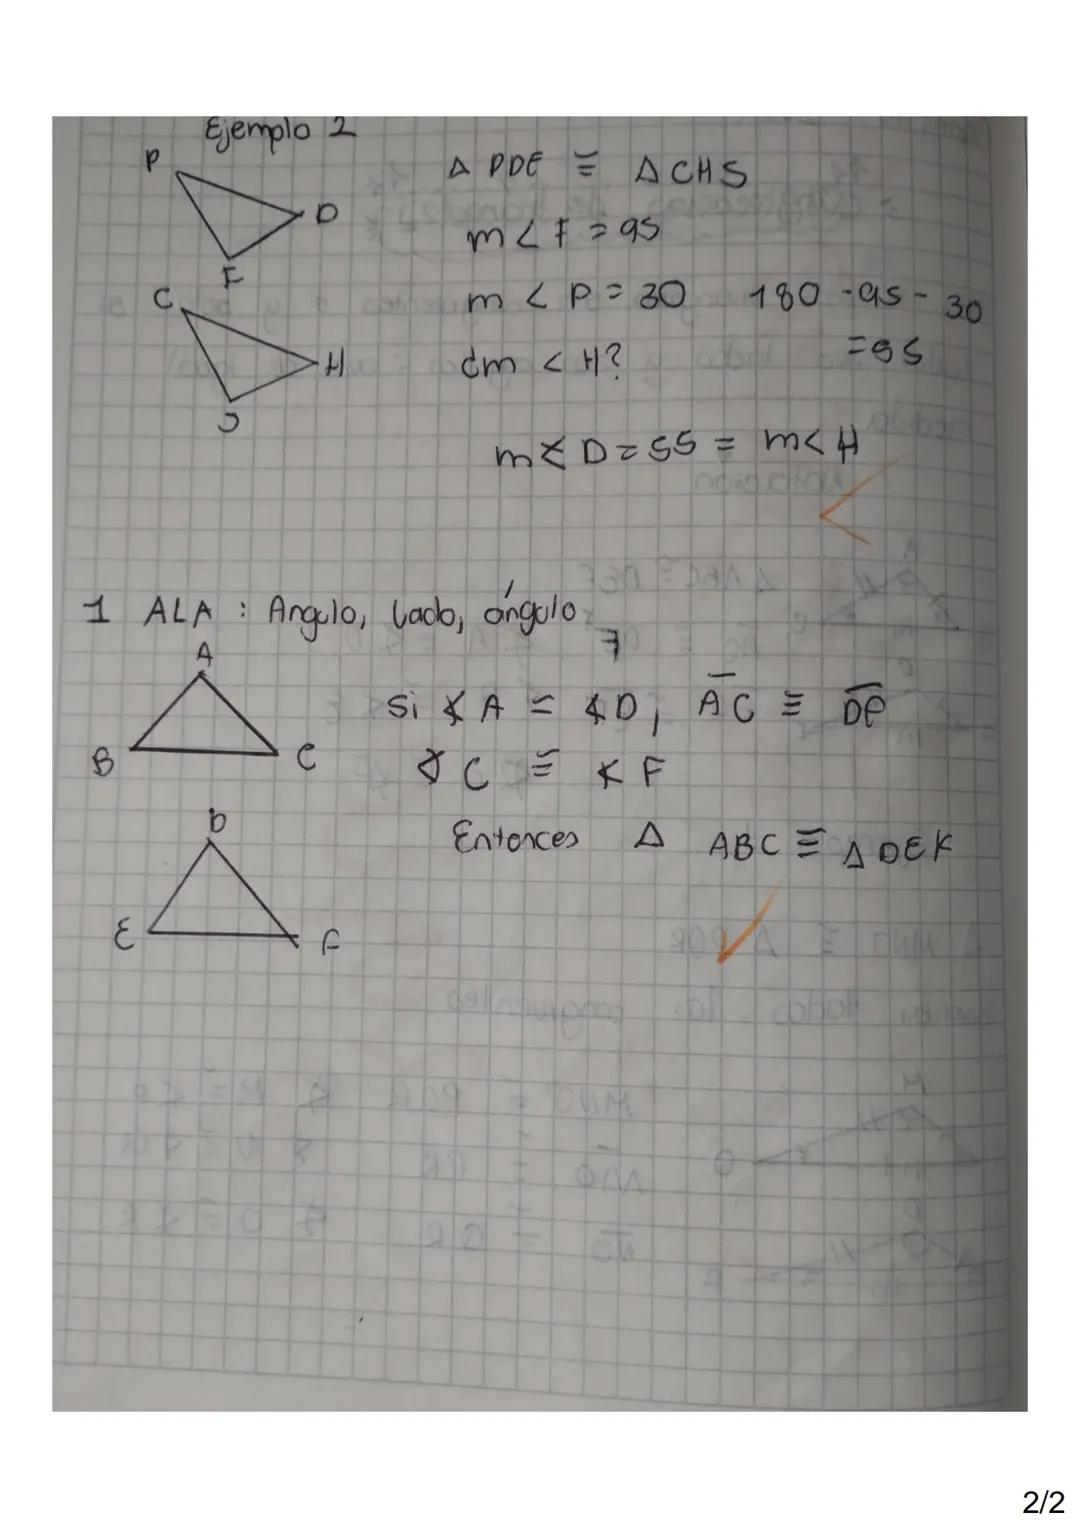 Ejemplo 2
P
D
F
Δ PDE ≅ Δ CHS
m∠F = 95
m∠P = 30 180 - 95 - 30
= 55
¿m∠H?
C
H
J
m∡D = 55 = m∠H
1 ALA : Angulo, lado, ángulo
A
B
C
Si ∡A ≅ ∡D, AC ≅ DF
∡C ≅ ∡F
Entonces Δ ABC ≅ Δ DEK
D
E
F
2/2